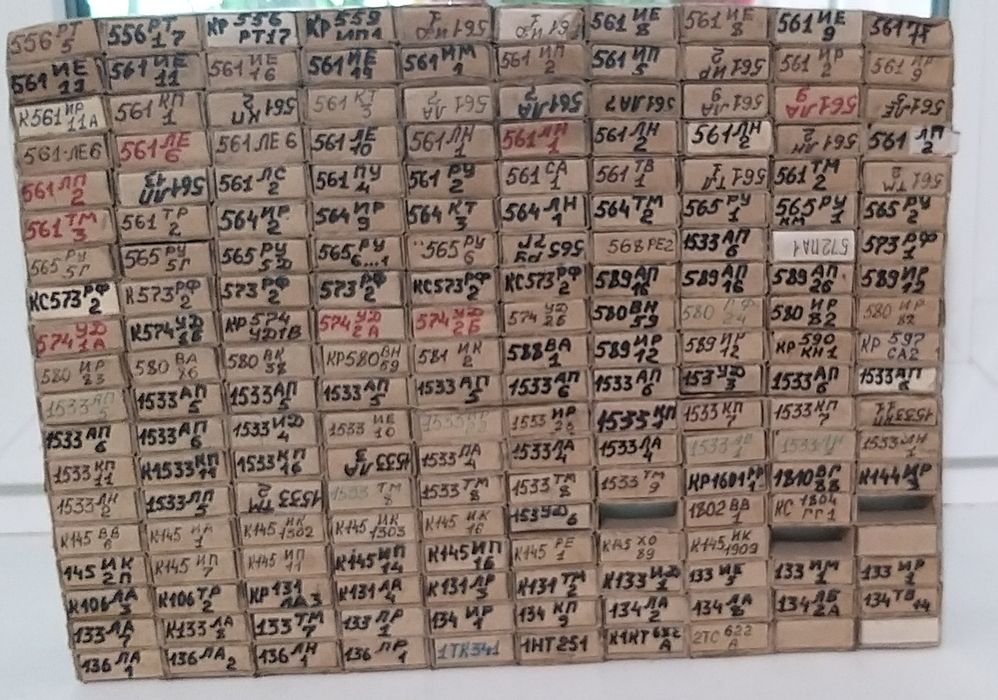 556 РТ 5 556 РТ 17 КР 556 РТ17 КР 559 ИП1 561 ИЕ 8 561 ИЕ 8 561 ИЕ 9
561 ИЕ 11 561 ИЕ 16 561 ИМ 1 561 ИП 2 561 ИП 5 561 ИР 2 561 ИР 6
К561 ИР 11А 561 КП 1 561 КП 2 561 КТ 3 561 ЛА 2 561 ЛА 7 561 ЛА 9 561 ЛА 9 561 ЛЕ
561-ЛЕ6 561 ЛЕ 6 561 ЛЕ 6 561 ЛЕ 10 561 ЛН 1 561 ЛН 1 561 ЛН 2 561 ЛН 2 561 ЛН 2 561 ЛП 2
561 ЛП 2 561 ЛП 13 561 ЛС 2 561 ПУ 4 561 РУ 2 561 СА 1 561 ТВ 1 561 ТЛ 1 561 ТМ 2 561 ТМ 2
561 ТМ 3 561 ТР 2 564 ИР 2 564 ИР 9 564 КТ 3 564 ЛН 1 564 ТМ 2 565 РУ 1 565 РУ 1 565 РУ 2
565 РУ 5Г 565 РУ 5Г 565 РУ 5Д 565 РУ 6...1 565 РУ 6 565 РУ 568 РЕ2 1533 АП 6 572ПА1 573 РФ 1
КС573 РФ 2 К573 РФ 2 573 РФ 2 573 РФ 2 КС573 РФ 2 КС573 РФ 2 589 АП 16 589 АП 16 589 АП 26 589 ИР 12
574 УД 1А К574 УД 1Б КР 574 УД1В 574 УД 2А 574 УД 2Б 574 УД 2Б 580 ВН 59 580 580 ИР 82 580 ИР 82
580 ИР 83 580 ВА 86 580 ВК 38 КР580 ВН 59 581 ИК 2 588 ВА 1 589 ИР 12 589 ИР 12 КР 590 КН1 КР 597 СА2
1533 АП 5 1533 АП 5 1533 АП 5 1533 АП 5 1533 АП 5 1533 АП 6 1533 АП 6 153 УД 3 1533 АП 6 1533 АП 6
1533 АП 6 1533 АП 6 1533 ИД 4 1533 ИЕ 10 1533 ИР 1533 ИР 1533 КП 1533 КП 7 1533 КП 7 1533 КП 11
1533 КП 11 К1533 КП 11 1533 КП 16 1533 ЛА 3 1533 ЛА 4 1533 ЛА 4 1533 ЛА 4 1533 1533 1533 ЛН 1
1533 ЛН 2 1533 ЛП 5 1533 ТМ 2 1533 ТМ 8 1533 ТМ 8 1533 ТМ 8 1533 ТМ 9 КР1601 РР 1 1810 ВГ 88 К144 ИР 3
К145 ВВ 6 К145 ИА 1 К145 ИК 1302 К145 ИК 1303 К145 ИК 16 153 УД 6 1802 ВВ 1 КС 1804 ГГ1
К145 ИК 2П К145 ИП 7 К145 ИП 11 К145 ИП 14 К145 ИП 16 К145 РЕ 1 К145 ХО 89 К145 ИК 1909
К106 ЛА 3 К106 ТР 2 КР 131 ЛА 3 К131 ЛА 4 К131 ЛР 3 К131 ТМ 2 К133 ИД 1 133 ИЕ 5 133 ИМ 1 133 ИР 1
133 ЛА 7 К133 ЛА 8 133 ТМ 7 133 ПР 1 134 ИР 1 134 КП 9 134 ЛА 2 134 ЛА 8 134 ЛБ 2А 134 ТВ 14
136 ЛА 1 136 ЛА 2 136 ЛН 1 136 ЛР 1 1ТК341 1НТ251 К1КТ 622 А 2ТС 622 А